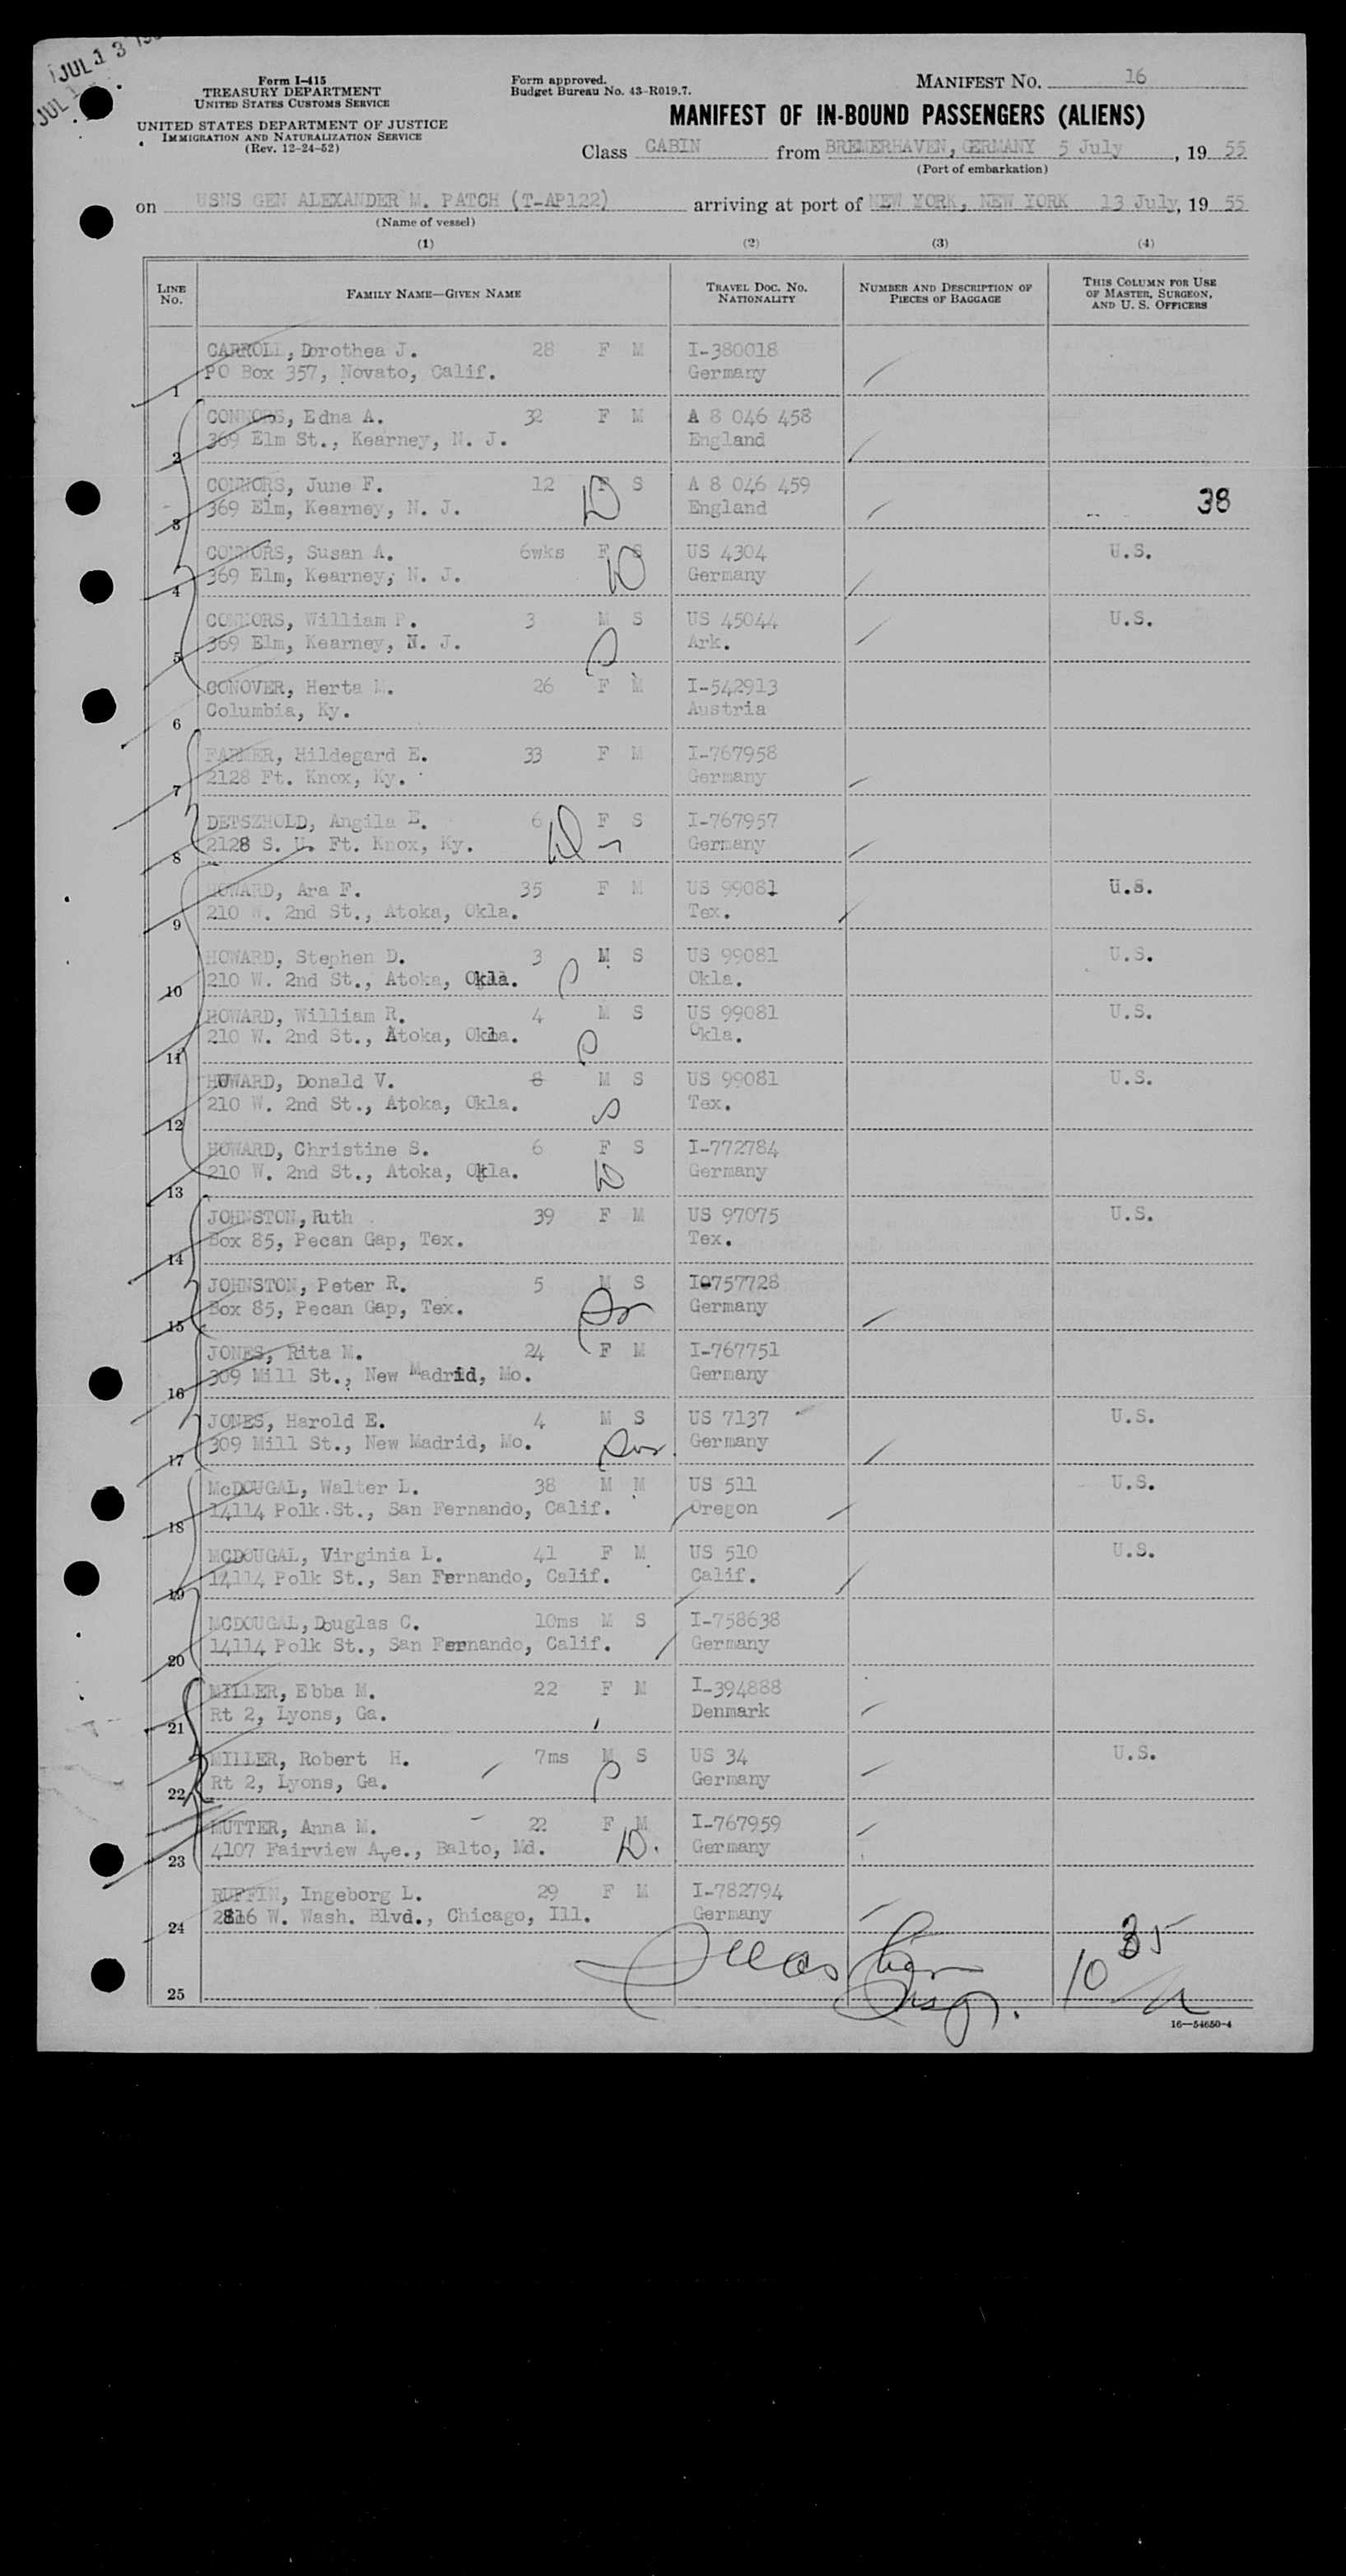 JUL 13
JUL 1
Form I-415
TREASURY DEPARTMENT
UNITED STATES CUSTOMS SERVICE
UNITED STATES DEPARTMENT OF JUSTICE
IMMIGRATION AND NATURALIZATION SERVICE
(Rev. 12-24-52)
Form approved.
Budget Bureau No. 43-R019.7.
MANIFEST NO. 16
MANIFEST OF IN-BOUND PASSENGERS (ALIENS)
Class CABIN from BREMERHAVEN, GERMANY 5 July, 19 55
(Port of embarkation)
on USNS GEN ALEXANDER M. PATCH (T-AP122) arriving at port of NEW YORK, NEW YORK 13 July, 19 55
(Name of vessel)
(1) (2) (3) (4)
LINE No. FAMILY NAME—GIVEN NAME TRAVEL DOC. NO. NATIONALITY NUMBER AND DESCRIPTION OF PIECES OF BAGGAGE THIS COLUMN FOR USE OF MASTER, SURGEON, AND U. S. OFFICERS
CARROLL, Dorothea J. 28 F M I-380018
1 PO Box 357, Novato, Calif. Germany
CONNORS, Edna A. 32 F M A 8 046 458
2 369 Elm St., Kearney, N. J. England
CONNORS, June F. 12 F S A 8 046 459
3 369 Elm, Kearney, N. J. England 38
CONNORS, Susan A. 6wks F S US 4304 U.S.
4 369 Elm, Kearney, N. J. Germany
CONNORS, William P. 3 M S US 45044 U.S.
5 369 Elm, Kearney, N. J. Ark.
CONOVER, Herta M. 26 F M I-542913
6 Columbia, Ky. Austria
FARMER, Hildegard E. 33 F M I-767958
7 2128 Ft. Knox, Ky. Germany
DETSZHOLD, Angila E. 6 F S I-767957
8 2128 S. U. Ft. Knox, Ky. Germany
HOWARD, Ara F. 35 F M US 99081 U.S.
9 210 W. 2nd St., Atoka, Okla. Tex.
HOWARD, Stephen D. 3 M S US 99081 U.S.
10 210 W. 2nd St., Atoka, Okla. Okla.
HOWARD, William R. 4 M S US 99081 U.S.
11 210 W. 2nd St., Atoka, Okla. Okla.
HOWARD, Donald V. 8 M S US 99081 U.S.
12 210 W. 2nd St., Atoka, Okla. Tex.
HOWARD, Christine S. 6 F S I-772784
13 210 W. 2nd St., Atoka, Okla. Germany
JOHNSTON, Ruth 39 F M US 97075 U.S.
14 Box 85, Pecan Gap, Tex. Tex.
JOHNSTON, Peter R. 5 M S I-757728
15 Box 85, Pecan Gap, Tex. Germany
JONES, Rita M. 24 F M I-767751
16 309 Mill St., New Madrid, Mo. Germany
JONES, Harold E. 4 M S US 7137 U.S.
17 309 Mill St., New Madrid, Mo. Germany
McDOUGAL, Walter L. 38 M M US 511 U.S.
18 14114 Polk St., San Fernando, Calif. Oregon
MCDOUGAL, Virginia L. 41 F M US 510 U.S.
19 14114 Polk St., San Fernando, Calif. Calif.
MCDOUGAL, Douglas C. 10ms M S I-758638
20 14114 Polk St., San Fernando, Calif. Germany
MILLER, Ebba M. 22 F M I-394888
21 Rt 2, Lyons, Ga. Denmark
MILLER, Robert H. 7ms M S US 34 U.S.
22 Rt 2, Lyons, Ga. Germany
MUTTER, Anna M. 22 F M I-767959
23 4107 Fairview Ave., Balto, Md. Germany
RUFFIN, Ingeborg L. 29 F M I-782794
24 2816 W. Wash. Blvd., Chicago, Ill. Germany
35
10
25
16—54650-4